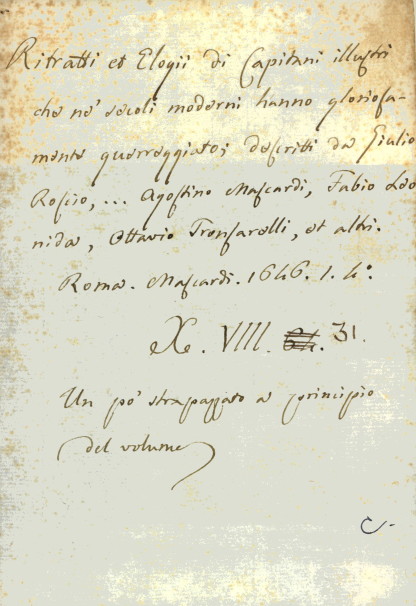 Ritratti et Elogii di Capitani illustri
che ne' secoli moderni hanno gloriosa-
mente guerreggiato; descritti da Giulio
Roscio, ... Agostino Mascardi, Fabio Leo
nida, Ottavio Tronsarelli, et altri.
Roma. Mascardi. 1646. 1. 4°.
X. VIII. 31.
Un pò strapazzato a principio
del volume
C-